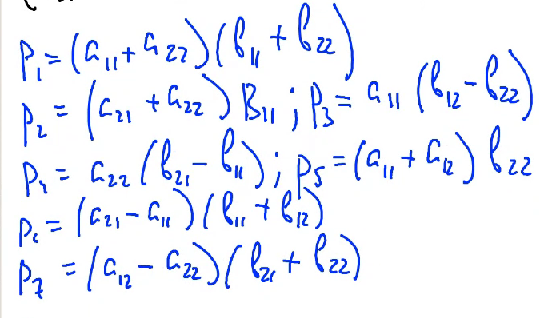 P₁ = (a₁₁ + a₂₂)(b₁₁ + b₂₂)
P₂ = (a₂₁ + a₂₂) B₁₁ ; P₃ = a₁₁ (b₁₂ - b₂₂)
P₄ = a₂₂ (b₂₁ - b₁₁) ; P₅ = (a₁₁ + a₁₂) b₂₂
P₆ = (a₂₁ - a₁₁)(b₁₁ + b₁₂)
P₇ = (a₁₂ - a₂₂)(b₂₁ + b₂₂)